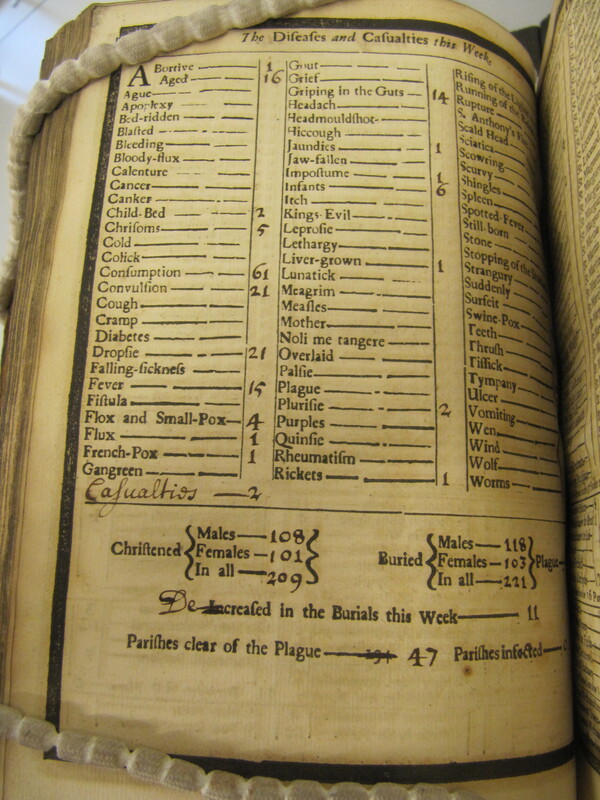 The Diſeaſes and Caſualties this Week
Abortive 1
Aged 16
Ague
Apoplexy
Bed-ridden
Blaſted
Bleeding
Bloody-flux
Calenture
Cancer
Canker
Child-Bed 2
Chriſoms 5
Cold
Colick
Conſumption 61
Convulſion 21
Cough
Cramp
Diabetes
Dropſie 21
Falling-ſickneſs
Fever 15
Fiſtula
Flox and Small-Pox 4
Flux 1
French-Pox 1
Gangreen
Caſualties 2
Gout
Grief
Griping in the Guts 14
Headach
Headmouldſhot
Hiccough
Jaundies 1
Jaw-fallen
Impoſtume 1
Infants 6
Itch
Kings-Evil
Leproſie
Lethargy
Liver-grown 1
Lunatick
Meagrim
Meaſles
Mother
Noli me tangere
Overlaid
Palſie
Plague
Pluriſie 2
Purples
Quinſie
Rheumatiſm
Rickets 1
Riſing of the
Running of the
Rupture
S. Anthony's
Scald Head
Sciatica
Scowring
Scurvy
Shingles
Spleen
Spotted-Fever
Still-born
Stone
Stopping of the
Strangury
Suddenly
Surfeit
Swine-Pox
Teeth
Thruſh
Tiſſick
Tympany
Ulcer
Vomiting
Wen
Wind
Wolf
Worms
Chriſtened { Males 108 Females 101 In all 209 }
Buried { Males 118 Females 103 In all 221 } Plague
De Increaſed in the Burials this Week 11
Pariſhes clear of the Plague 47 Pariſhes infected